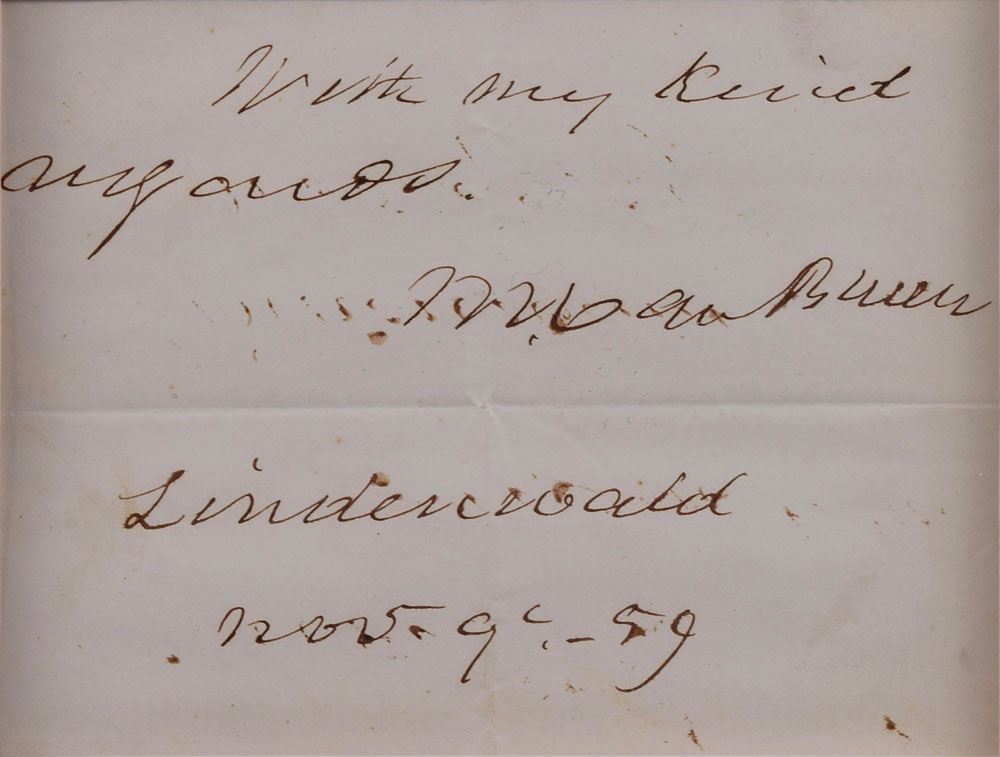 With my kind
regards.
M Van Buren
Lindenwald
Nov. 9 - 59